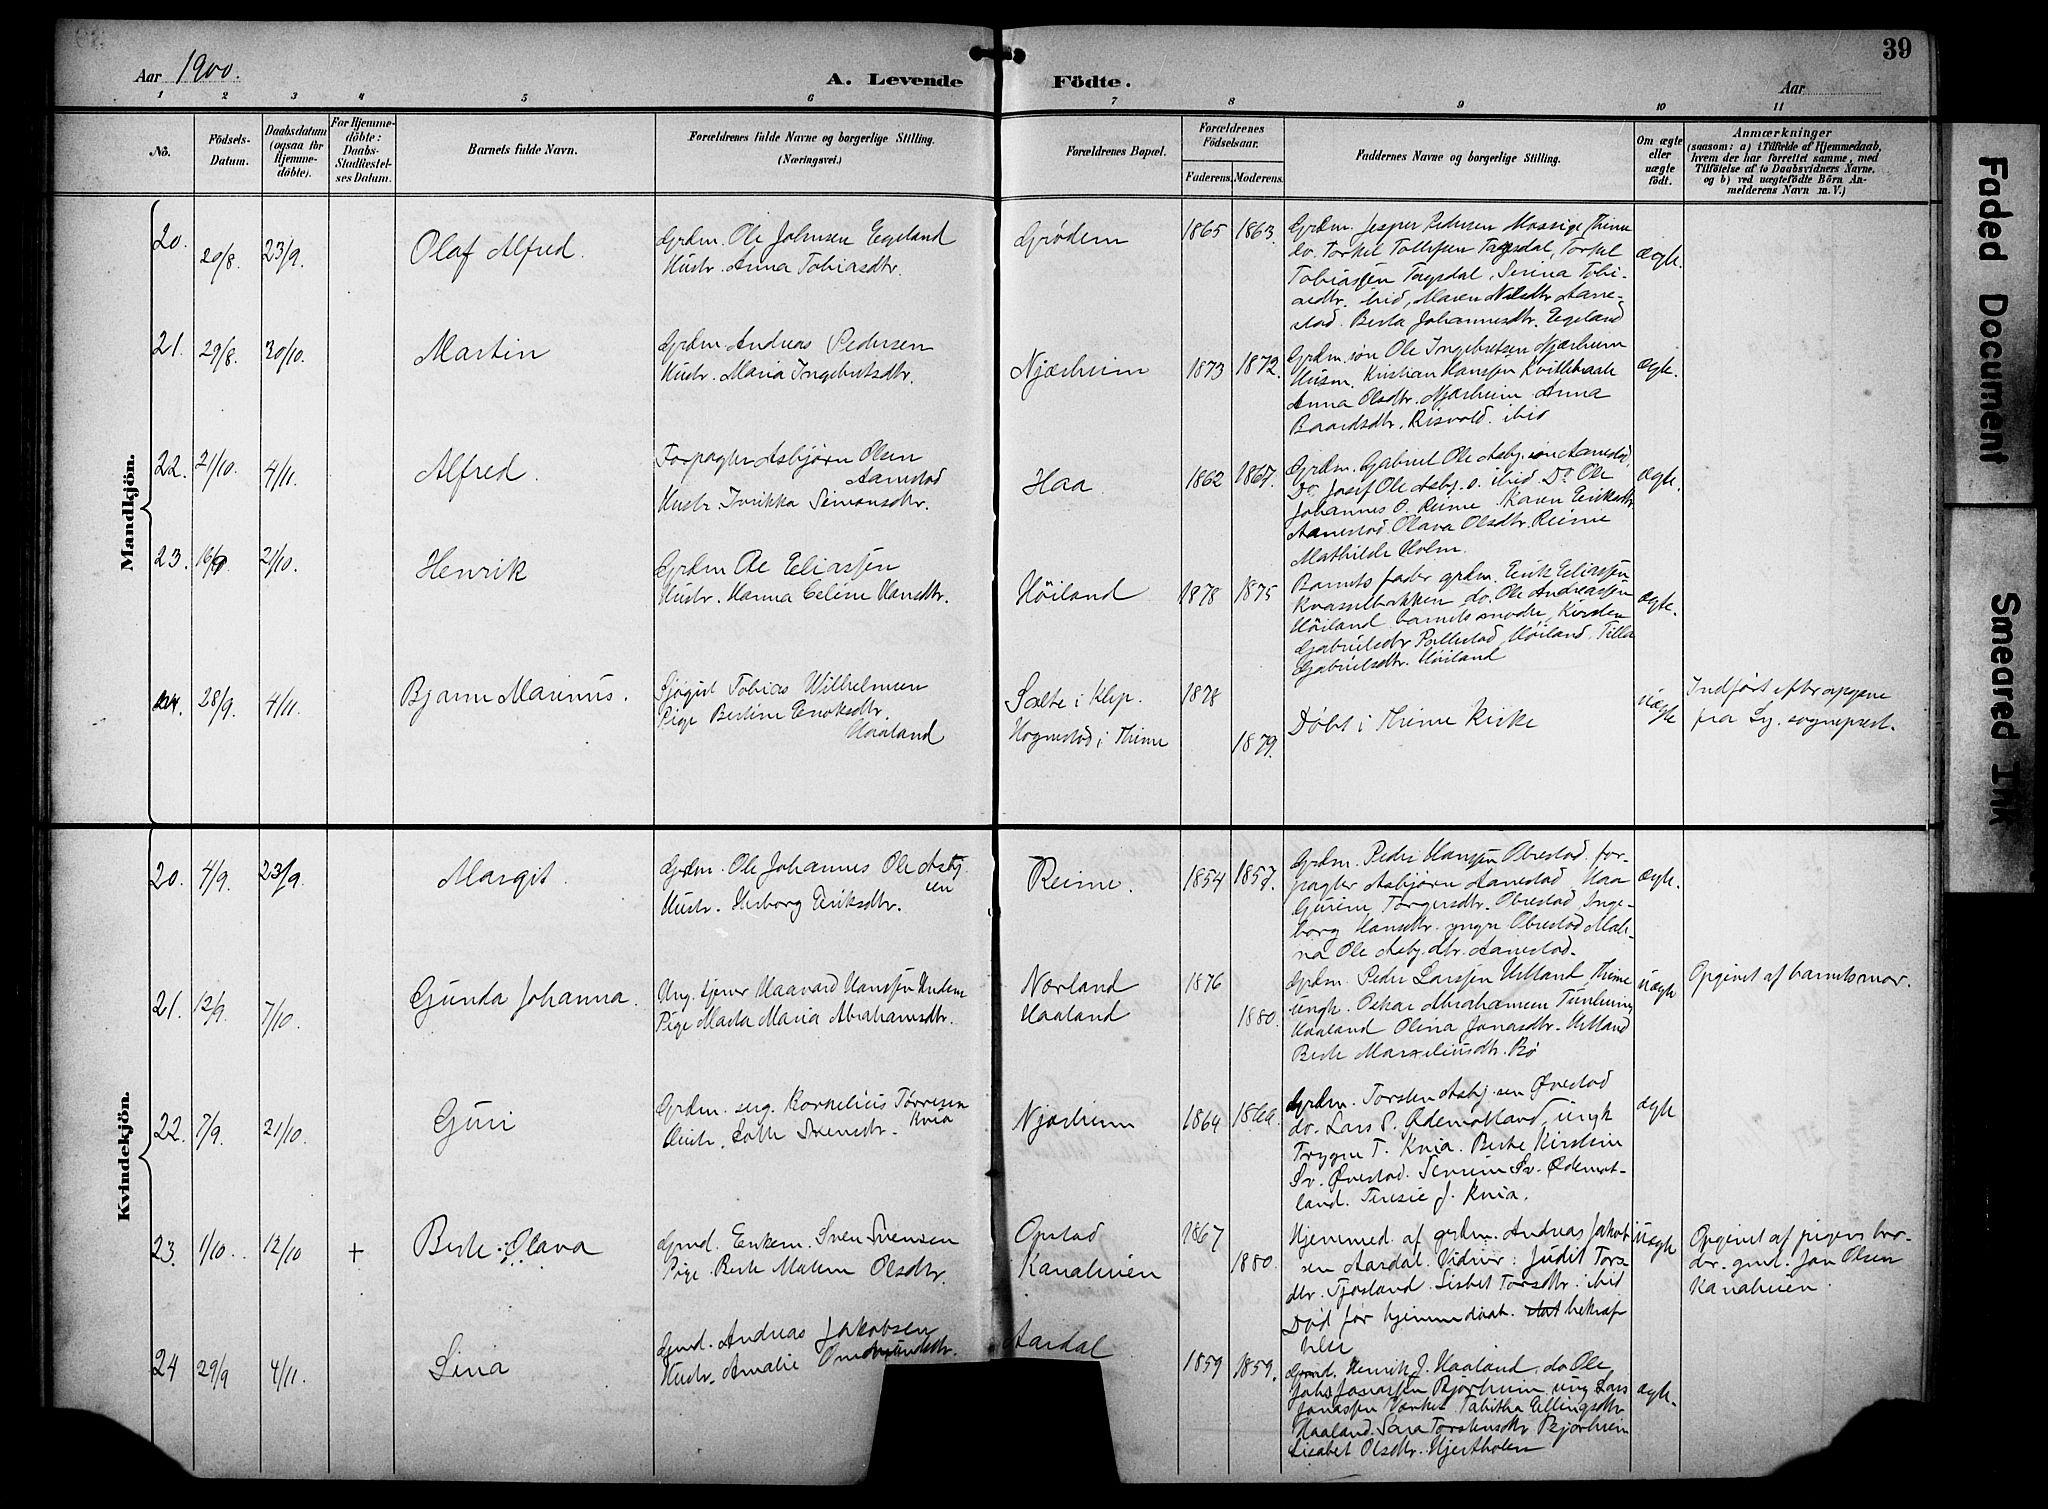 Aar 1900.
A. Levende Födte.
Aar
39
1 2 3 4 5 6 7 8 9 10 11
Nö.
Födsels-
Datum.
Daabsdatum
(ogsaa för
Hjemme-
döbte).
For Hjemme-
döbte:
Daabs-
Stadfæstel-
ses Datum.
Barnets fulde Navn.
Forældrenes fulde Navne og borgerlige Stilling.
(Næringsvei.)
Forældrenes Bopæl.
Forældrenes
Födselsaar.
Faderens. Moderens.
Faddernes Navne og borgerlige Stilling.
Om ægte
eller
uægte
födt.
Anmærkninger
(saasom: a) i Tilfælde af Hjemmedaab,
hvem der har forrettet samme, med
Tilföielse af to Daabsvidners Navne,
og b) ved uægtefödte Börn An-
melderens Navn m. V.)
Mandkjön.
20. 20/8. 23/9. Olaf Alfred.
Grdm. Ole Johnsen Egeland
Hustr. Anna Tobiasdtr.
Grødem 1865 1863.
Grdm. Jesper Pedersen Mossige Thime
do. Torkel Tollefsen Taksdal, Torkel
Tobiassen Taksdal, Serina Tobi-
asdtr. ibid, Maren Nilsdtr Aane-
stad. Berta Johannesdtr. Egeland
ægte.
21. 29/8. 30/10. Martin
Grdm. Andreas Pedersen
Hustr. Maria Ingebretsdtr.
Njærheim 1873 1872.
Grdm. søn Ole Ingebretsen Njærheim
Husm. Kristian Hanssen Kvittebaale
Anna Olsdtr. Njærheim Anna
Baardsdtr. Risvold. ibid
ægte.
22. 21/10. 4/11. Alfred.
Forpagter Asbjørn Olsen
Aanestad
Hustr. Simonsdtr.
Haa. 1862 1867.
Grdm. Gabriel Ole Asbj. søn Aanestad,
Do. Josef Ole Asbj. s. ibid. Do Ole
Johannes O. Reime Karen Eriksdtr
Aanestad. Olava Olsdtr. Reime
Mathilde Holm.
ægte.
23. 16/9 21/10. Henrik
Grdm. Ae Eliassen
Hustr. Hanna Celine Hansdtr.
Høiland 1878 1875
Barnets fader grdm. Erik Eliassen
Kvasselbakken do. Ole Andreassen
Høiland barnets moder, Kirsten
Gabrielsdtr Pollestad, Høiland. Tilla
Gabrielsdtr. Høiland
ægte.
24. 28/9. 4/11. Bjarne Marinus.
Sjøgut Tobias Wilhelmsen
Pige Bertine Enoksdtr.
Haaland
Salte i Klep. 1878
Hognestad i Thime 1879.
Døbt i Thime Kirke
uægte
Indført efter opgave
fra Ly. sogneprest.
Kvindekjön.
20. 4/9. 23/9. Margit.
Grdm. Ole Johannes Ole Asbj.
sen
Hustr. Herborg Eriksdtr.
Reime. 1854 1857.
Grdm. Peder Hansen Obrestad. for-
pagter Asbjørn Aanestad Haa
Gurine Torgersdtr. Obrestad, Inge-
borg Hansdtr. yngre Obrestad Mal-
na Ole Asbj. dtr. Aanestad.
ægte.
21. 12/9. 7/10. Gunda Johanna.
Ung. tjener Haavard Hanssen Undem
Pige Marta Maria Abrahamsdtr.
Nærland 1876
Haaland 1880.
Grdm. Peder Larssen Netland Thime
ungk. Oskar Abrahamsen Tunheim
Haaland Olina Jonasdtr. Netland
Berte Marseliusdtr. Bø
uægte
Opgivet af barnets mor.
22. 7/9. 21/10. Guri
Grdm. serg. Kornelius Tørresen
Kvia
Hustr. Lotte Svensdtr.
Njærheim 1864 1862.
Grdm. Torsten Asbj. sen Øvestad
do. Lars P. Ødemotland, ungk
Trygve T. Kvia. Berte Kirstein
Sv. Øvestad. Severine Sv. Ødemot-
land. Teresie J. Kvia.
ægte
23. 1/10. 12/10 + Berte Olava
Grmd. Enkem. Sven Svensen
Pige Berte Malene Olsdtr.
Opstad 1867
Kanalveien 1880.
Hjemmed. af grdm. Andreas Jakob
sen Aardal. Vidner: Judit Tors
dtr. Tjøsland. Lisbet Torsdtr. ibid
Død før hjemmedaab. bekræf
tedes
uægte
Opgivet af pigens bro-
der. grmd. Jon Olsen
Kanalveien.
24 29/9 4/11. Lina
Grmd. Andreas Jakobsen
Hustr. Amalie Omundsdtr.
Aardal 1859 1859.
Grmd. Henrik J. Haaland, do Ole
Johs. Josiassen Bjorheim ung Lars
Jonassen Varhet Tabitha Ellingsdtr
Haaland. Sara Torstensdtr Bjorheim
Lisabet Olsdtr. Hjertholen
ægte.
Faded Document
Smeared Ink